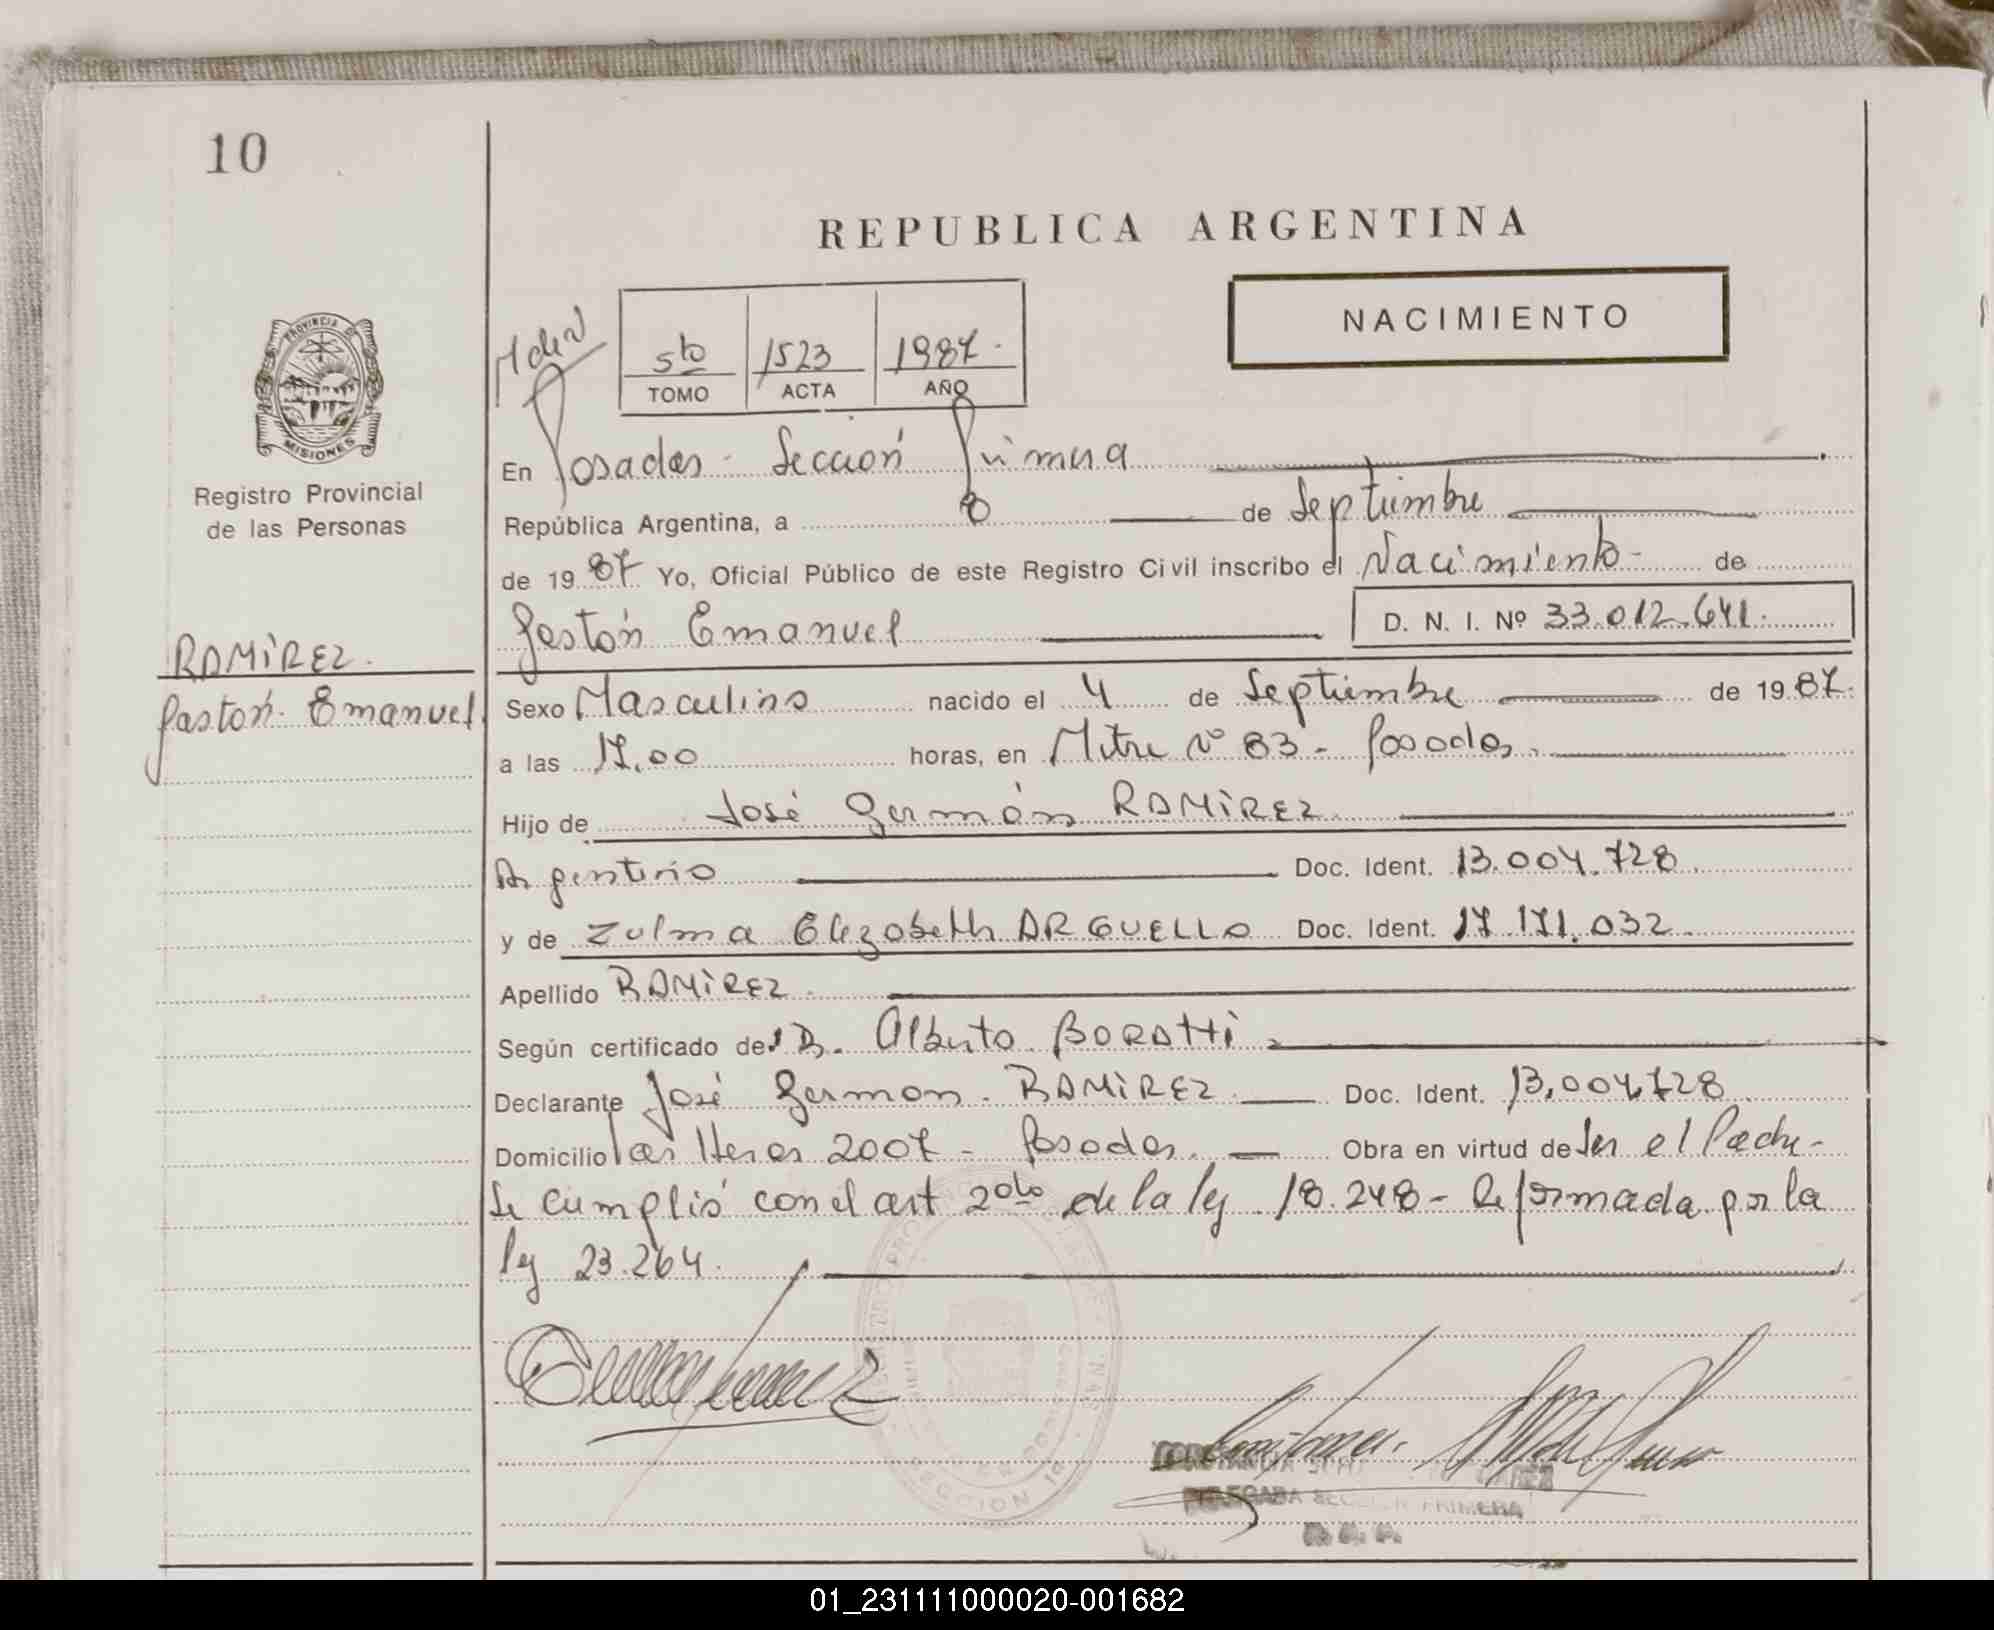 10
REPUBLICA ARGENTINA
NACIMIENTO
5to 1523 1987.
TOMO ACTA AÑO
PROVINCIA DE
MISIONES
Registro Provincial
de las Personas
En Posadas - Sección Primera
República Argentina, a 8 de Septiembre
de 1987 Yo, Oficial Público de este Registro Civil inscribo el Nacimiento- de
Gastón Emanuel D. N. I. Nº 33.012.641.
RAMÌREZ.
Gastón Emanuel
Sexo Masculino nacido el 4 de Septiembre de 1987.
a las 17.00 horas, en Mitre Nº 83 - Posadas.
Hijo de José Germán RAMÌREZ
Argentino Doc. Ident. 13.004.728
y de Zulma Elizabeth ARGUELLO Doc. Ident. 17.171.032
Apellido RAMÌREZ
Según certificado del Dr. Alberto BORATTI
Declarante José Germán RAMÌREZ Doc. Ident. 13.004.728
Domicilio Las Heras 2007 - Posadas. Obra en virtud de Ser el Padre-
Se cumplió con el art 2do de la ley 18.248 - Reformada por la
ley 23.264.
SECCION 1ª
DELEGADA SECCION PRIMERA
01_231111000020-001682